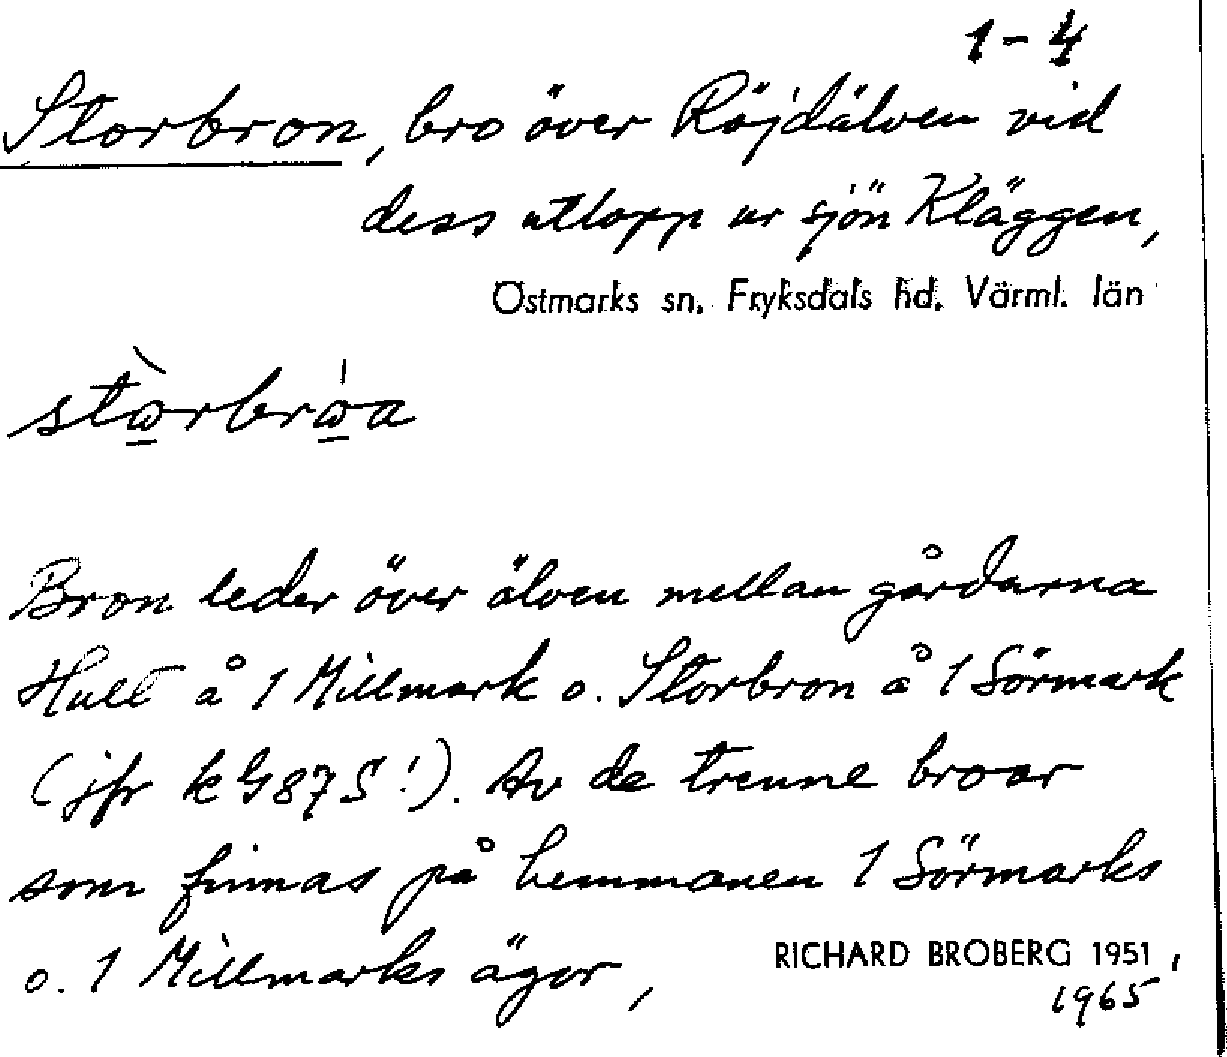 1-4
Storbron, bro över Röjdälven vid
dess utlopp ur sjön Kläggen,
Östmarks sn. Fryksdals hd. Värml. län
stòrbróa
Bron leder över älven mellan gårdarna
Hult å 1 Millmark o. Storbron å 1 Sörmark
(jfr k G87S!). Av de trenne broar
som finnas på hemmanen 1 Sörmarks
o. 1 Millmarks ägor,
RICHARD BROBERG 1951,
1965